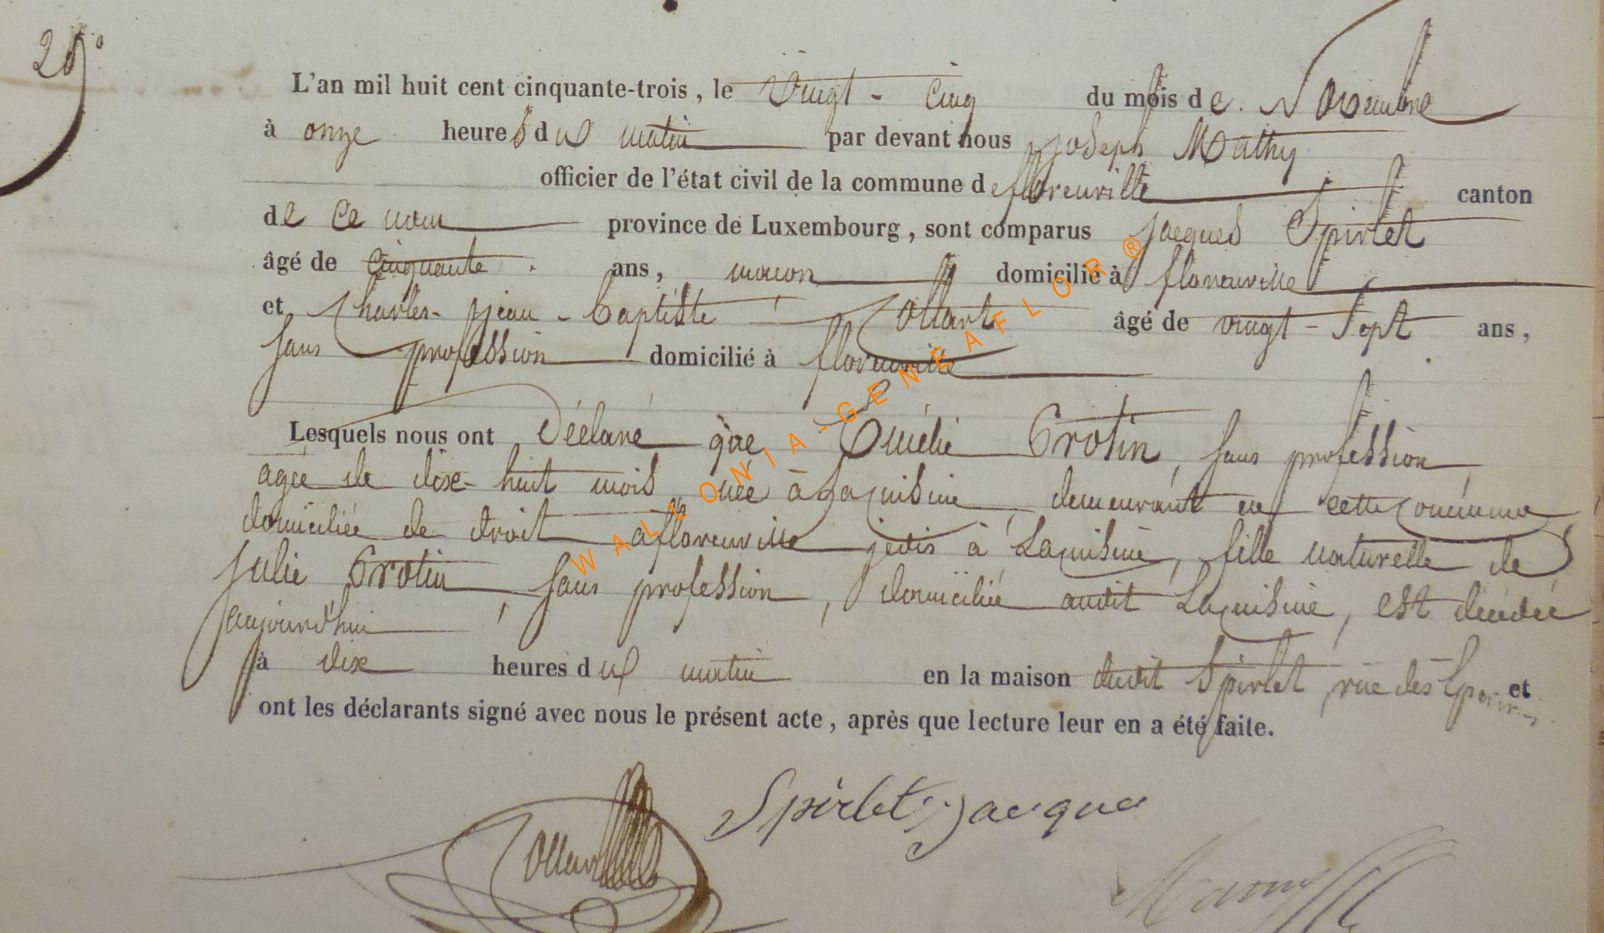 L'an mil huit cent cinquante-trois, le vingt-cinq du mois de Novembre
à onze heures du matin par devant nous joseph Mathy
officier de l'état civil de la commune de florenville canton
de ce nom province de Luxembourg, sont comparus jacques Spirlet
âgé de cinquante ans, macon domicilié à florenville
et Charles-jean-baptiste Collart âgé de vingt-sept ans,
sans profession domicilié à florenville
Lesquels nous ont Déclaré que Emélie Crotin, sans profession
agée de dix-huit mois née à Lacuisine, demeurant en cette commune
domiciliée de droit a florenville jadis à Lacuisine, fille naturelle de
julie Crotin, sans profession, domiciliée audit Lacuisine, est décédée
aujourd'hui
à dix heures du matin en la maison dudit Spirlet, rue des et
ont les déclarants signé avec nous le présent acte, après que lecture leur en a été faite.
Collart Spirlet jacque
WALLONIA-GENEAFLOR®